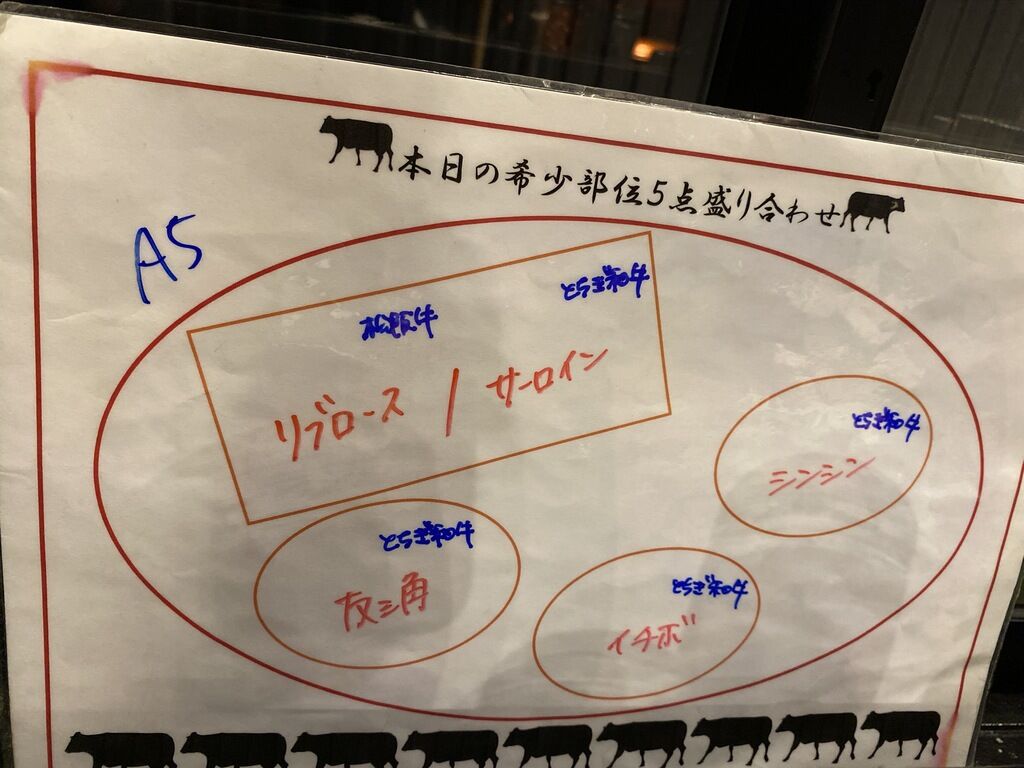 本日の希少部位5点盛り合わせ
A5
松阪牛
とちぎ和牛
リブロース / サーロイン
とちぎ和牛
シンシン
とちぎ和牛
友三角
とちぎ和牛
イチボ